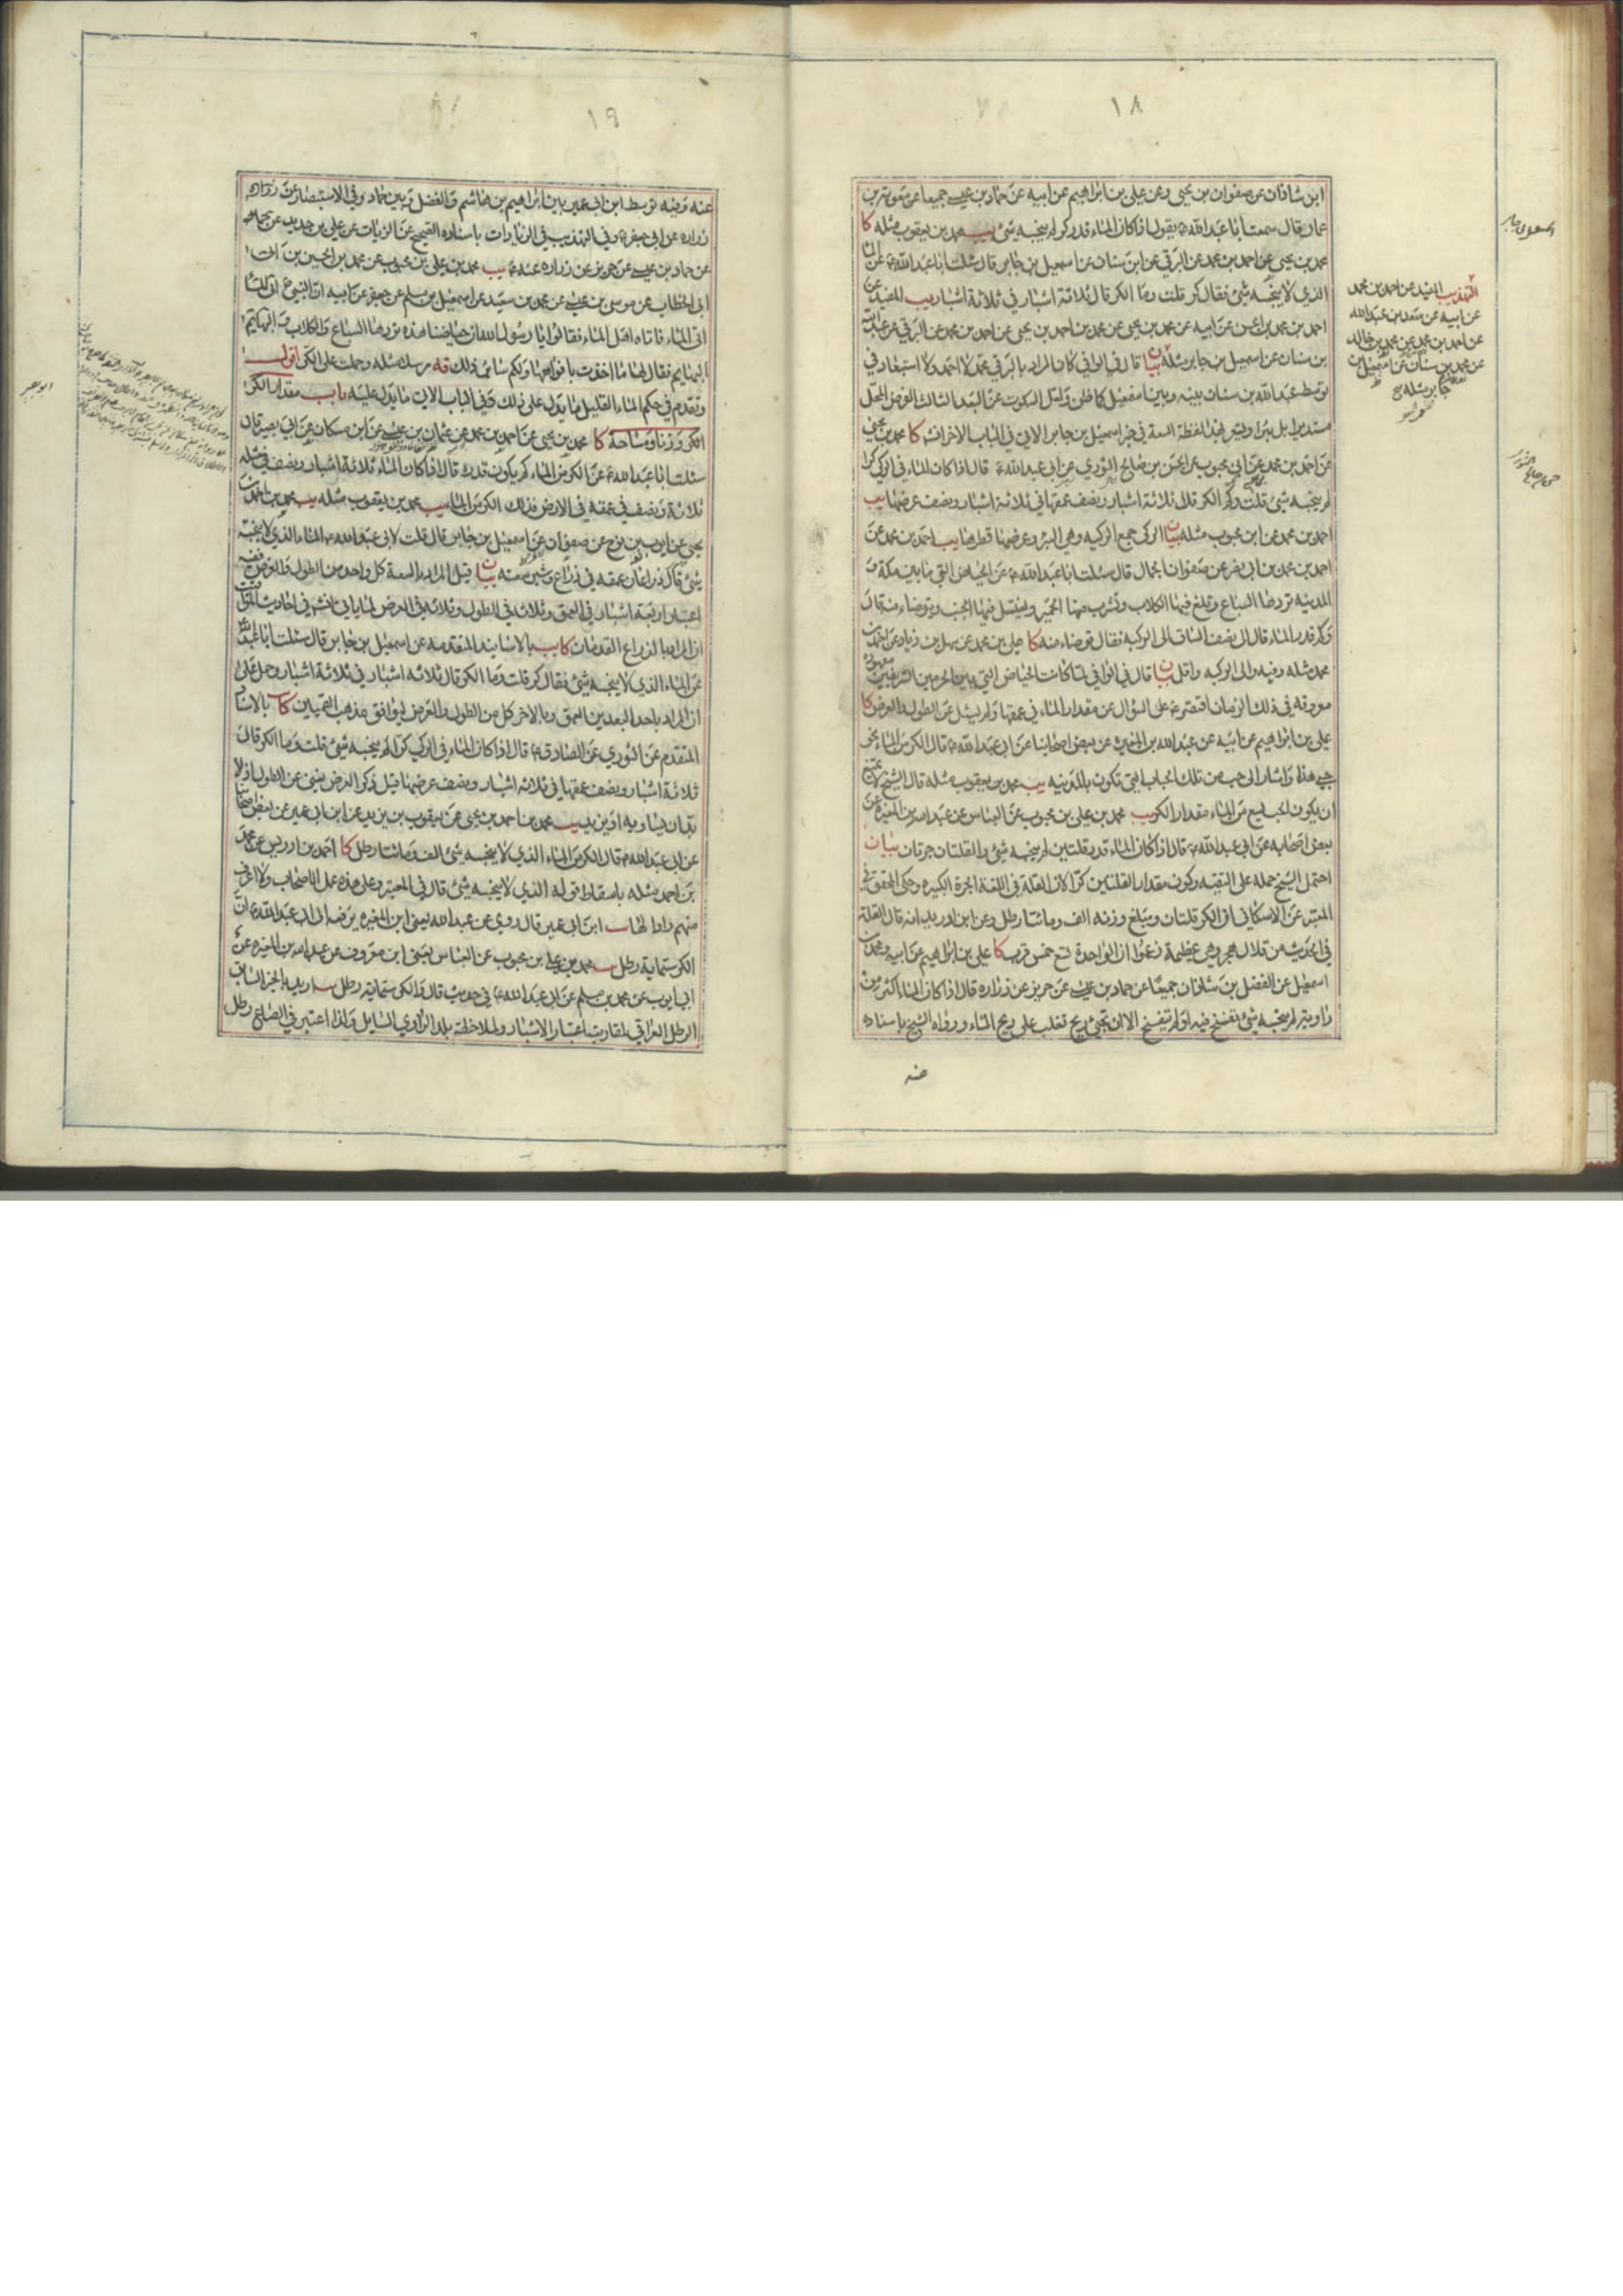 ١٨
ابن شاذان عن صفوان بن يحيى وعن علي بن ابراهيم عن ابيه عن حماد بن عيسى جميعا عن معوية بن
عمار قال سمعت ابا عبد الله ع يقول اذا كان الماء قدر كر لم ينجسه شئ يب محمد بن يعقوب مثله كا
محمد بن يحيى عن احمد بن محمد عن البرقي عن ابن سنان عن اسمعيل بن جابر قال سئلت ابا عبد الله ع عن الماء
الذي لا ينجسه شئ فقال كر قلت وما الكر قال ثلاثة اشبار في ثلاثة اشبار يب المفيد عن
احمد بن محمد بن الحسن عن ابيه عن محمد بن يحيى عن محمد بن احمد بن يحيى عن احمد بن محمد عن البرقي عن عبد الله
بن سنان عن اسمعيل بن جابر مثله بيان قال في الوافي كان المراد بالبرقي محمد لا احمد ولا استبعاد في
توسط عبد الله بن سنان بينه وبين اسمعيل كما ظن ولعل السكوت عن البعد الثالث لفرض المحل
مستديرا بل بئرا ويشعر بهذا لفظة السعة في خبر اسمعيل بن جابر الاتي في الباب الاخر انتهى كا محمد بن يحيى
عن احمد بن محمد عن ابن محبوب عن الحسن بن صالح الثوري عن ابي عبد الله ع قال اذا كان الماء في الركي كرا
لم ينجسه شئ قلت وكم الكر قال ثلاثة اشبار ونصف عمقها في ثلاثة اشبار ونصف عرضها يب
احمد بن محمد عن ابن محبوب مثله بيان الركى جمع الركيه وهي البئر وعرضها قطرها يب احمد بن محمد عن
احمد بن محمد بن ابي نصر عن صفوان الجمال قال سئلت ابا عبد الله ع عن الحياض التي ما بين مكة و
المدينه تردها السباع وتلغ فيها الكلاب وتشرب منها الحمير ويغتسل فيها الجنب ويتوضاء منه قال
وكم قدر الماء قال الى نصف الساق والى الركبه فقال توضاء منه كا علي بن محمد عن سهل بن زياد عن احمد بن
محمد مثله وفيه والى الركبه واقل بيان قال في الوافي لما كانت الحياض التي بين الحرمين الشريفين معهودة
معروفه في ذلك الزمان اقتصر ع على السؤال عن مقدار الماء في عمقها ولم يسئل عن الطول والعرض كا
علي بن ابراهيم عن ابيه عن عبد الله بن المغيرة عن بعض اصحابنا عن ابي عبد الله ع قال الكر من الماء نحو
حبي هذا واشار الى حب من تلك الحباب التي تكون بالمدينه يب محمد بن يعقوب مثله قال الشيخ لا يمتنع
ان يكون الحب يسع من الماء مقدار الكر يب محمد بن علي بن محبوب عن العباس عن عبد الله بن المغيره عن
بعض اصحابه عن ابي عبد الله ع قال اذا كان الماء قدر قلتين لم ينجسه شئ والقلتان جرتان بيان
احتمل الشيخ حمله على التقيه وكون مقدار القلتين كرا لان القلة في اللغة الجرة الكبيره وحكى المحقق في
المعتبر عن الاسكافي ان الكر قلتان ومبلغ وزنه الف ومائتا رطل وعن ابن دريد انه قال القلة
في الحديث من قلال هجر وهي عظيمة زعموا ان الواحدة تسع خمس قرب كا علي بن ابراهيم عن ابيه ومحمد بن
اسمعيل عن الفضل بن شاذان جميعا عن حماد بن عيسى عن حريز عن زراره قال اذا كان الماء اكثر من
راوية لم ينجسه شئ تفسخ فيه او لم يتفسخ الا ان تجئ ريح تغلب على ريح الماء ورواه الشيخ باسناده
عنه
التهذيب المفيد عن احمد بن محمد
عن ابيه عن سعد بن عبد الله
عن احمد بن محمد عن محمد بن خالد
عن محمد بن سنان عن اسمعيل بن
جابر مثله
١٩
عنه وفيه توسط ابن ابي عمير بين ابراهيم بن هاشم والفضل وبين حماد وفي الاستبصار عن زراره
زراره عن ابي جعفر ع وفي التهذيب في الزيادات باسناده الصحيح عن الزيات عن علي بن حديد عن حماد
عن حماد بن عيسى عن حريز عن زراره عنه ع يب محمد بن علي بن محبوب عن محمد بن الحسين بن
ابى الخطاب عن موسى بن عيسى عن محمد بن سعيد عن اسمعيل بن مسلم عن جعفر عن ابيه ان النبي ص
اتى الماء فاتاه اهل الماء فقالوا يا رسول الله ان حياضنا هذه تردها السباع والكلاب والبهائم
فقال لها ما اخذت بافواهها ولكم سائر ذلك قه مرسلا مثله وحملت على الكر اقول
وتقدم في حكم الماء القليل ما يدل على ذلك وفي الباب الاتي ما يدل عليه باب مقدار الكر
الكر وزنا ومساحة كا محمد بن يحيى عن احمد بن محمد عن عثمان بن عيسى عن ابن مسكان عن ابي بصير قال
سئلت ابا عبد الله ع عن الكر من الماء كم يكون قدره قال اذا كان الماء ثلاثة اشبار ونصف في مثله
ثلاثة ونصف في عمقه في الارض فذلك الكر من الماء يب محمد بن يعقوب مثله يب محمد بن احمد بن
يحيى عن ايوب بن نوح عن صفوان عن اسمعيل بن جابر قال قلت لابي عبد الله ع الماء الذي لا ينجسه
شئ قال ذراعان عمقه في ذراع وشبر سعته بيان قيل المراد بالسعة كل واحد من الطول والعرض
اعتبار اربعة اشبار في العمق وثلاثه في الطول وثلاثه في العرض لما ياتي
ان المراد بالذراع القدمان كا يب بالاسانيد المتقدمه عن اسمعيل بن جابر قال سئلت ابا عبد الله
عن الماء الذي لا ينجسه شئ فقال كر قلت وما الكر قال ثلاثه اشبار في ثلاثة اشبار وحمل على
ان المراد باحد البعدين العمق وبالاخر كل من الطول والعرض ليوافق مذهب القميين كا بالاسناد
المتقدم عن الثوري عن الصادق ع قال اذا كان الماء في الركي كرا لم ينجسه شئ قلت وما الكر قال
ثلاثة اشبار ونصف عمقها في ثلاثه اشبار ونصف عرضها قيل ذكر العرض يغني عن الطول اذ لا
بد ان يساويه او يزيد يب محمد بن احمد بن يحيى عن يعقوب بن يزيد عن ابن ابي عمير عن بعض اصحابنا
عن ابي عبد الله ع قال الكر من الماء الذي لا ينجسه شئ الف ومائتا رطل كا احمد بن ادريس عن محمد
بن احمد مثله باسقاط قوله الذي لا ينجسه شئ قال في المعتبر وعلى هذه عمل الاصحاب ولا اعرف
منهم رادا لها يب ابن ابي عمير قال روي عن عبد الله يعني ابن المغيره يرفعه الى ابي عبد الله ع ان
الكر ستماية رطل يب محمد بن علي بن محبوب عن العباس يعني ابن معروف عن عبد الله بن المغيره عن
ابي ايوب عن محمد بن مسلم عن ابي عبد الله ع في حديث قال والكر ستمايه رطل
الرطل العراقي لتقارب اعتبار الاشبار ولملاحظة بلد الراوي السايل ولذا اعتبر في الصاع رطل
ابو بصير